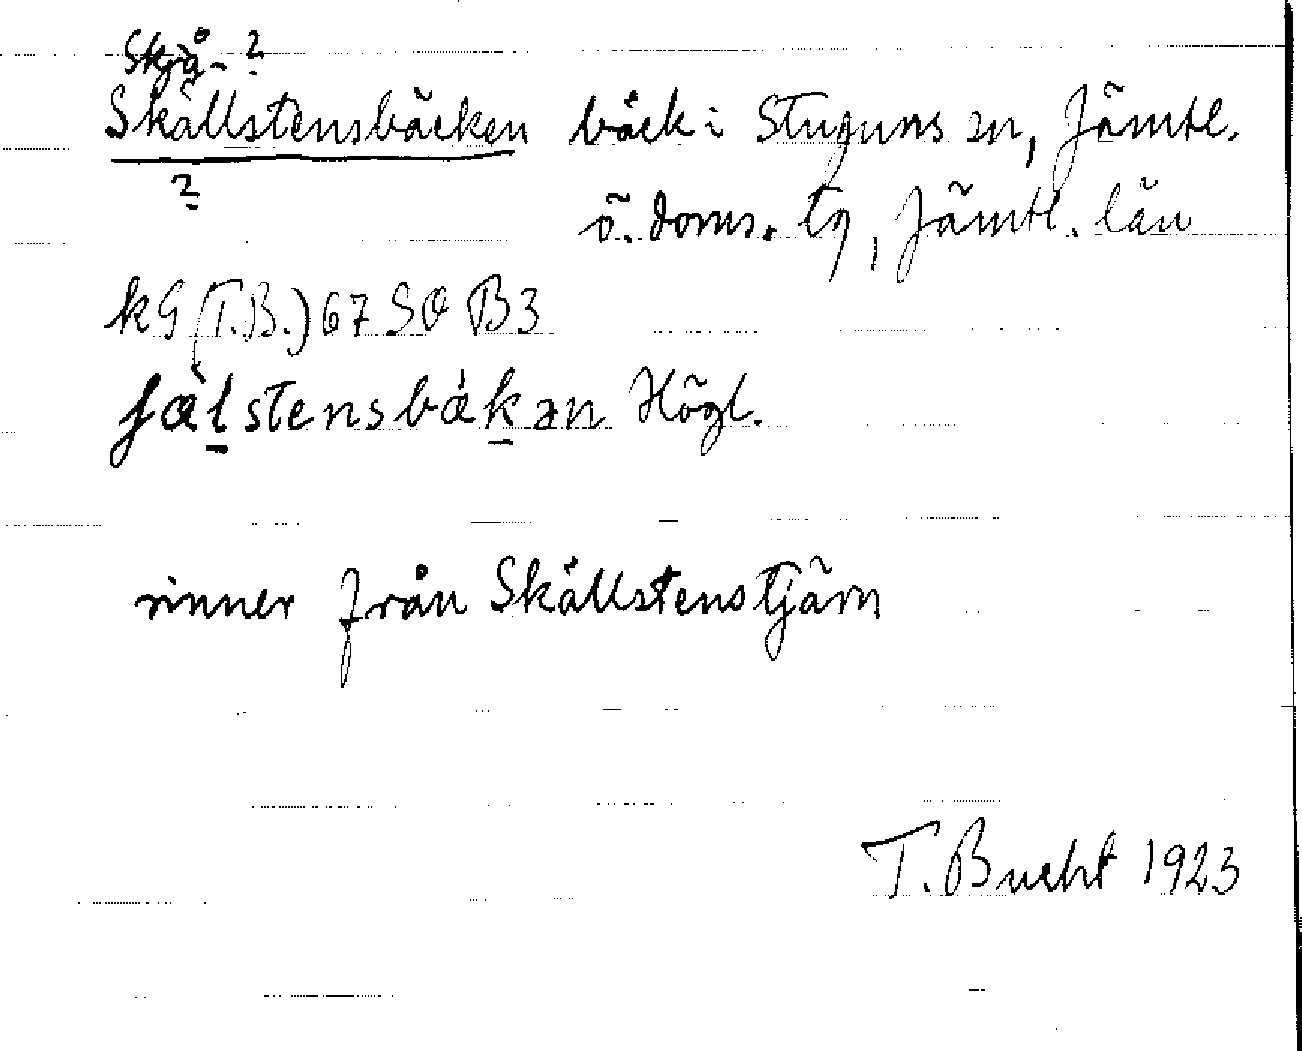 Skjå- ?
Skällstensbäcken bäck i Stuguns sn, Jämtl.
?
ö. doms. tg, Jämtl. län
kG (T.B.) 67 SO B3
ʃæ̀l̠stensbǽk̠ən Högl.
rinner från Skällstenstjärn
T. Bucht 1923